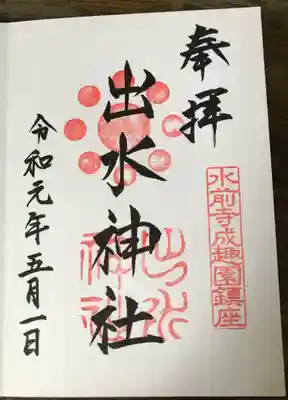 奉拝
水前寺成趣園鎮座
出水神社
出水神社
令和元年五月一日